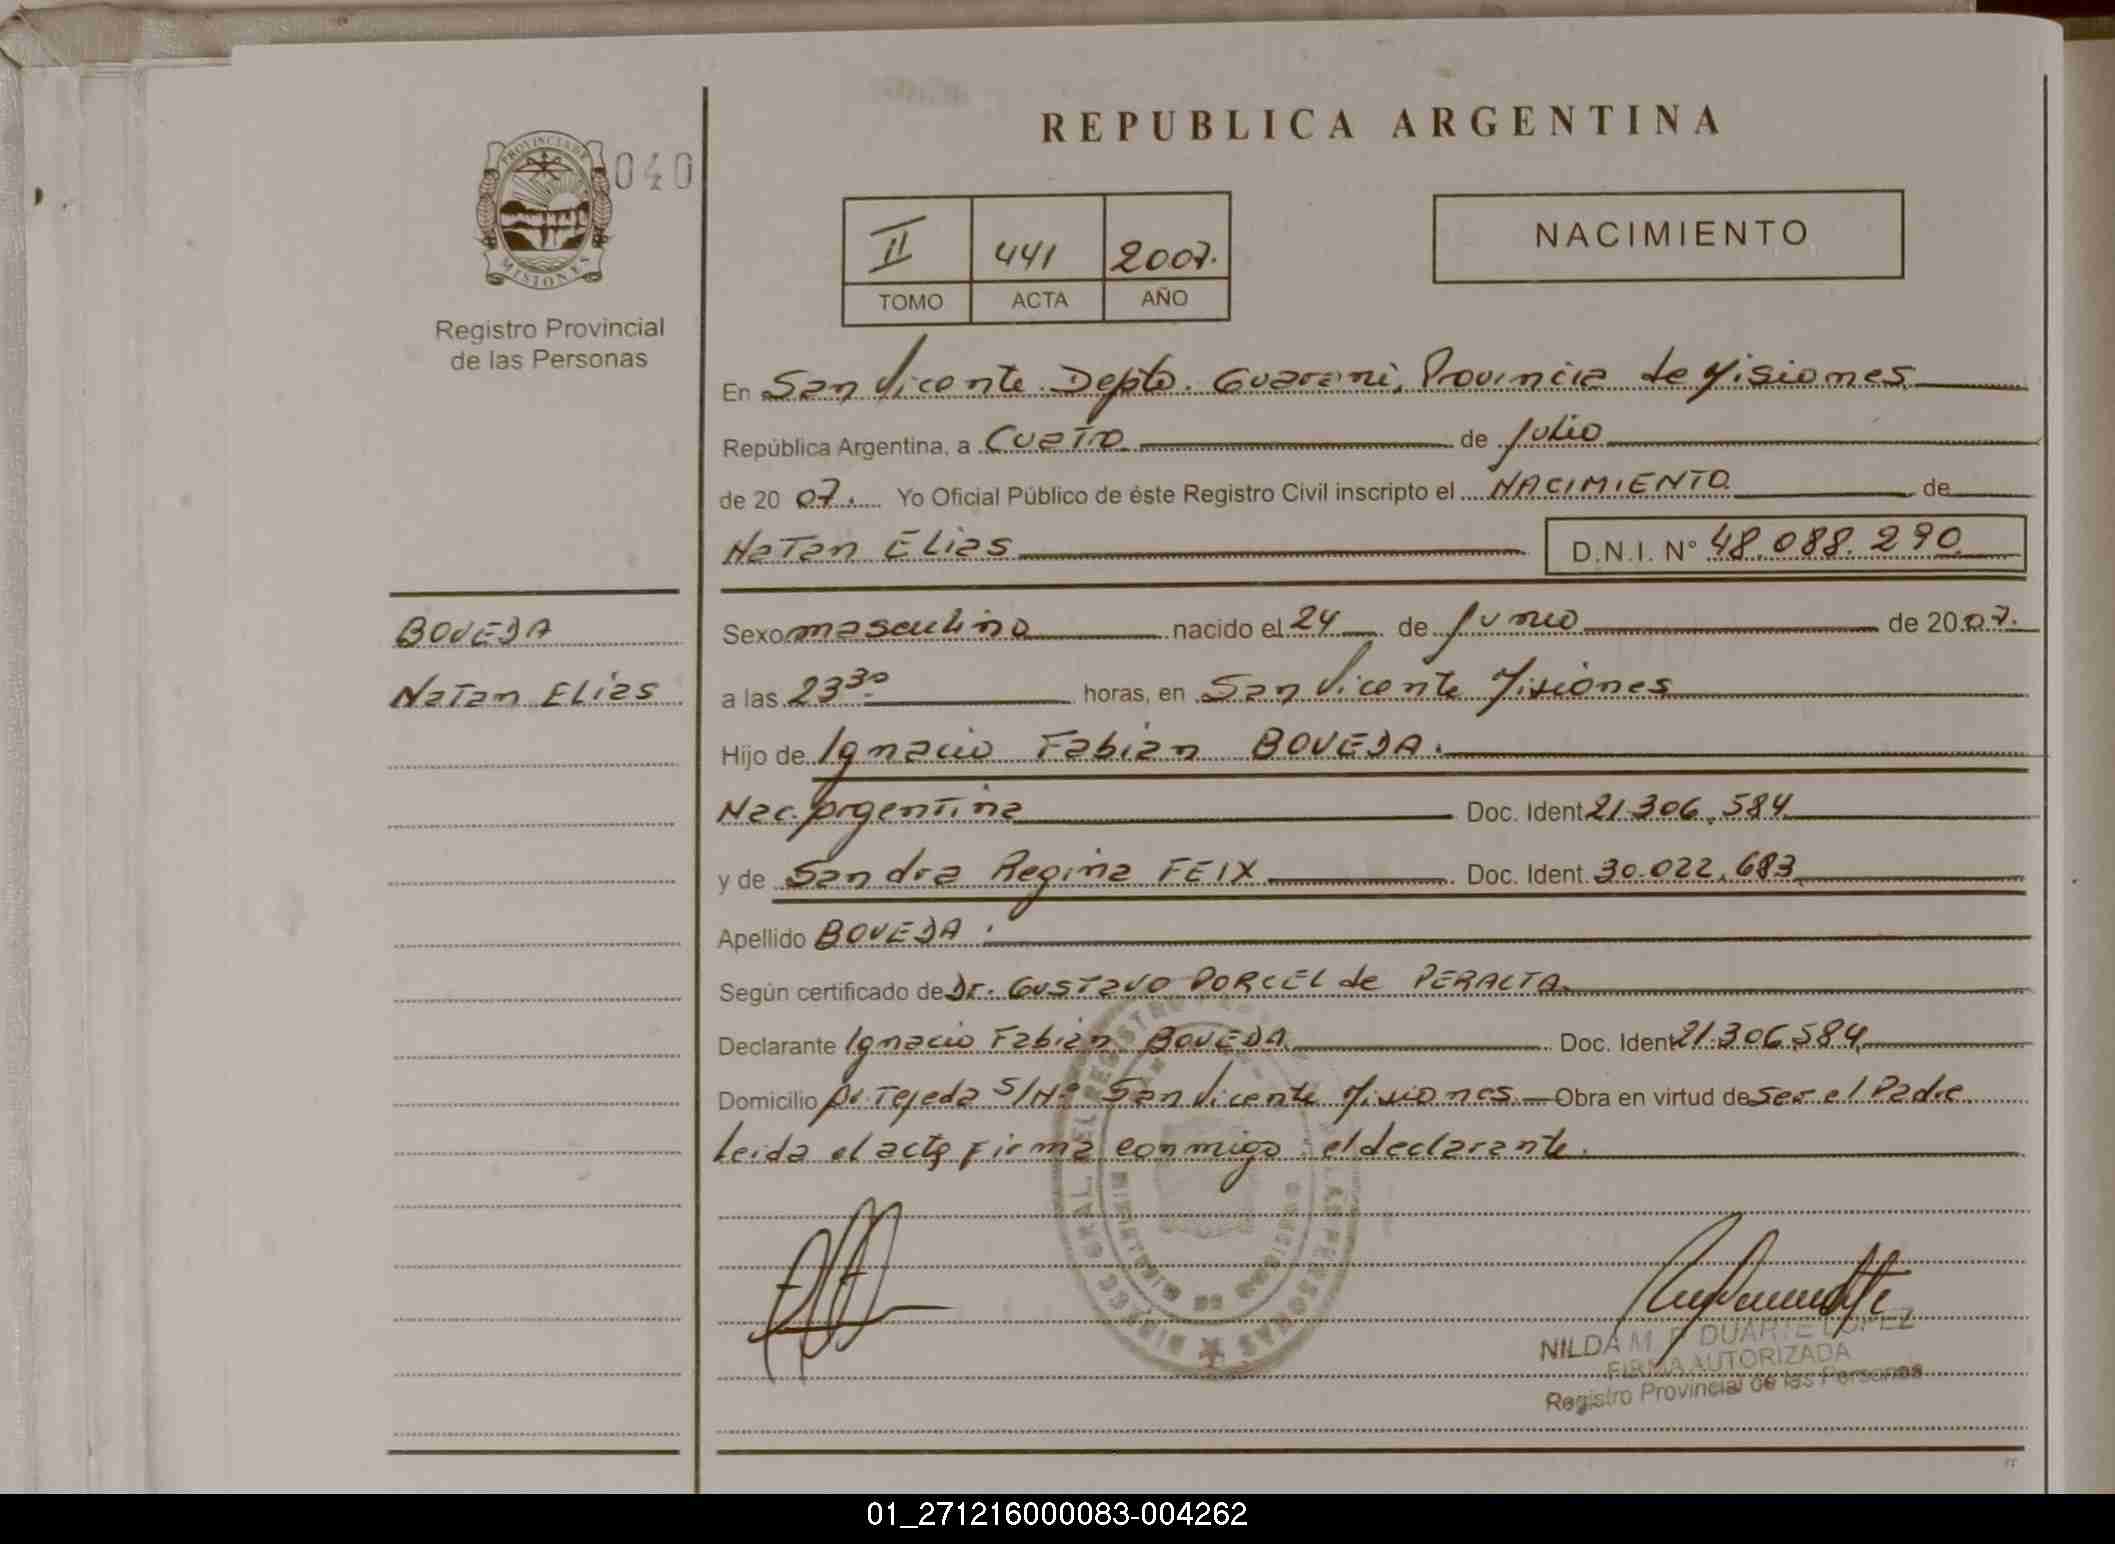 REPUBLICA ARGENTINA
PROVINCIA DE
MISIONES
040
Registro Provincial
de las Personas
II 441 2007.
TOMO ACTA AÑO
NACIMIENTO
En San Vicente Depto. Guarani, Provincia de Misiones
República Argentina, a Cuatro de Julio
de 20 07. Yo Oficial Público de éste Registro Civil inscripto el NACIMIENTO de
Natan Elias D.N.I. N° 48.088.290
BOVEDA
Natan Elias
Sexo masculino nacido el 24 de Junio de 20 07.
a las 23 30 horas, en San Vicente Misiones
Hijo de Ignacio Fabian BOVEDA.
Nac. Argentina Doc. Ident 21.306.584
y de Sandra Regina FEIX Doc. Ident. 30.022.683
Apellido BOVEDA.
Según certificado de Dr. Gustavo PORCEL de PERALTA
Declarante Ignacio Fabian BOVEDA Doc. Ident 21.306.584
Domicilio Tejeda S/N° San Vicente Misiones Obra en virtud de ser el Padre
Leida el acta firma conmigo el declarante.
NILDA M. DUARTE LOPEZ
FIRMA AUTORIZADA
Registro Provincial de las Personas
01_271216000083-004262